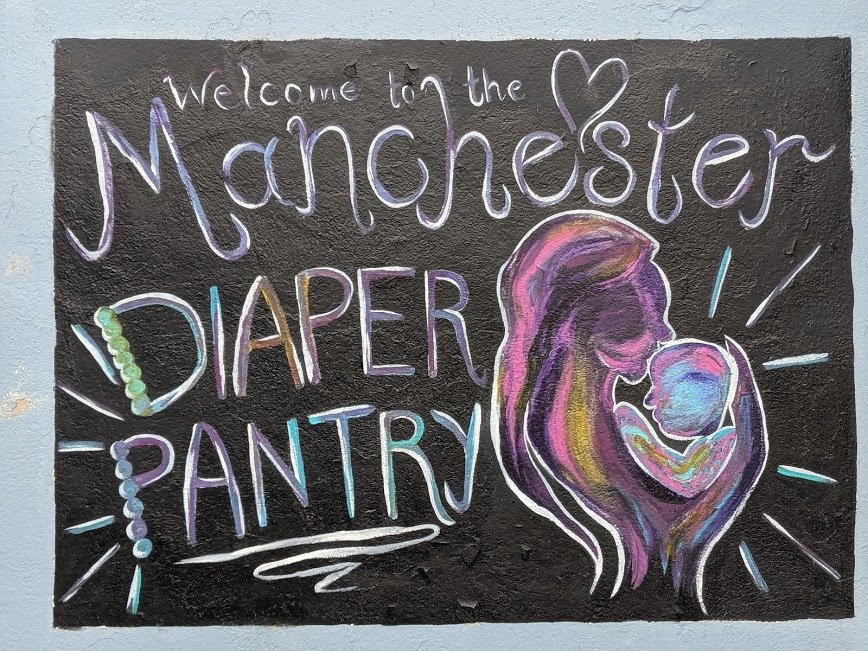 Welcome to the
Manchester
DIAPER
PANTRY